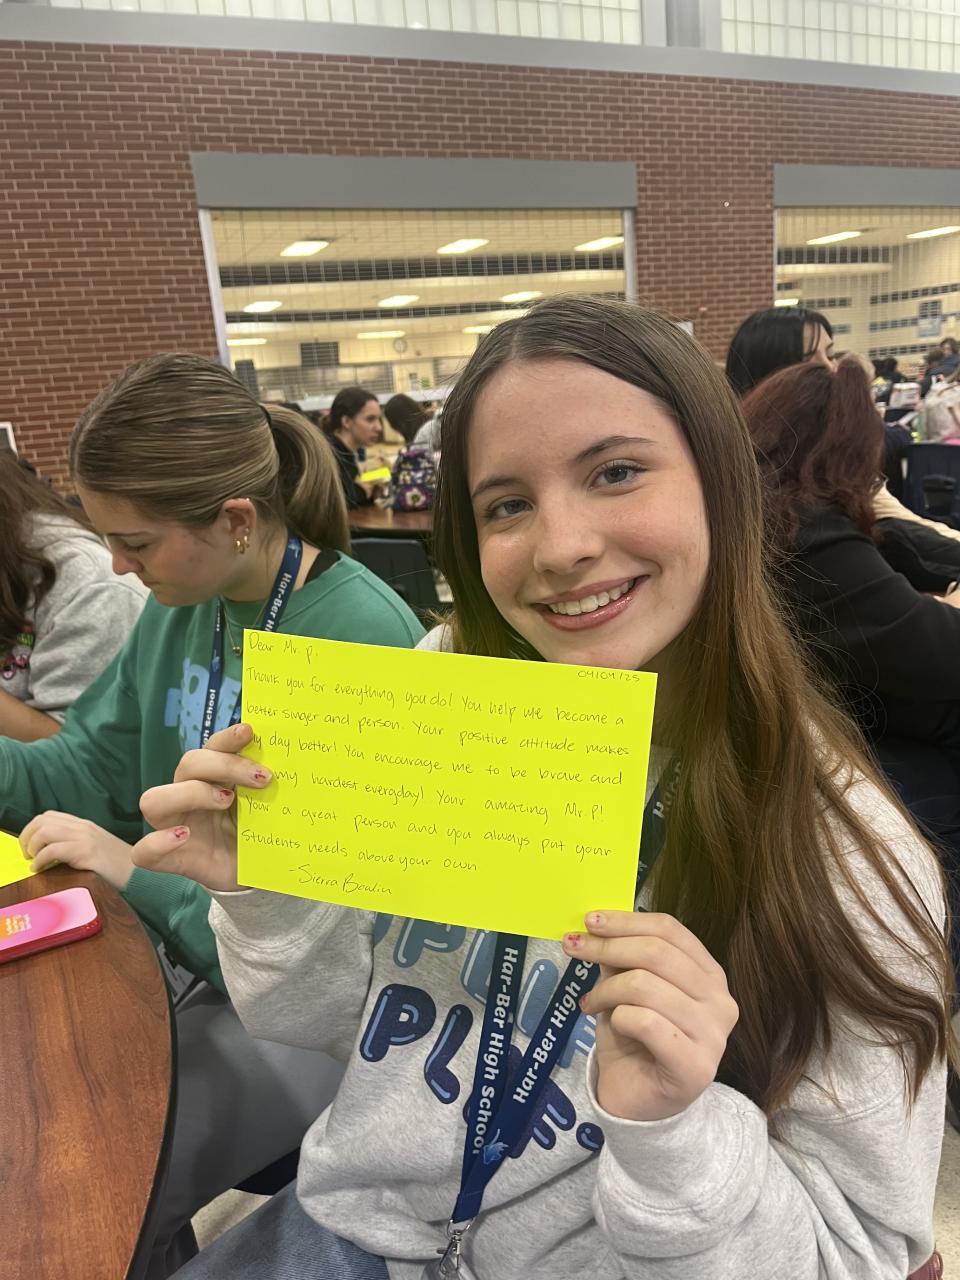 Dear Mr. P,
04/04/25
Thank you for everything you do! You help me become a
better singer and person. Your positive attitude makes
my day better! You encourage me to be brave and
my hardest everyday! Your amazing Mr. P!
Your a great person and you always put your
Students needs above your own
-Sierra Boulin
Har-Ber High School
Har-Ber High Sc
Har-Ber Hi
gh School